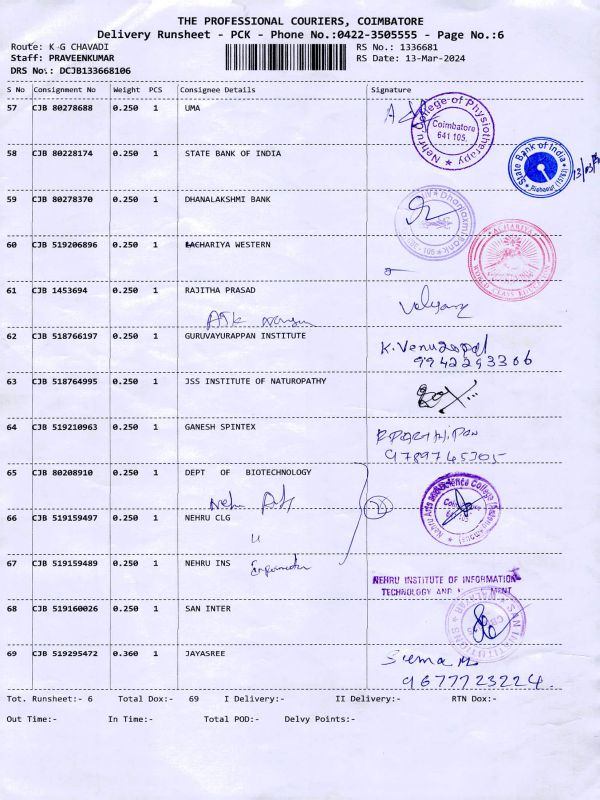 THE PROFESSIONAL COURIERS, COIMBATORE
Delivery Runsheet - PCK - Phone No.:0422-3505555 - Page No.:6
Route: K G CHAVADI
RS No.: 1336681
Staff: PRAVEENKUMAR
RS Date: 13-Mar-2024
DRS No.: DCJB133668106
S No Consignment No Weight PCS Consignee Details Signature
57 CJB 80278688 0.250 1 UMA
Nehru College of Physiotherapy
Coimbatore
641 105.
58 CJB 80228174 0.250 1 STATE BANK OF INDIA
State Bank of India
59 CJB 80278370 0.250 1 DHANALAKSHMI BANK
Dhanlaxmi Bank
60 CJB 519206896 0.250 1 LACHARIYA WESTERN
ACHARIYA
WORLD CLASS EDUCATION
61 CJB 1453694 0.250 1 RAJITHA PRASAD
62 CJB 518766197 0.250 1 GURUVAYURAPPAN INSTITUTE
K. Venugopal
9942293306
63 CJB 518764995 0.250 1 JSS INSTITUTE OF NATUROPATHY
64 CJB 519210963 0.250 1 GANESH SPINTEX
9789765305
65 CJB 80208910 0.250 1 DEPT OF BIOTECHNOLOGY
Nehru Arts and Science College
66 CJB 519159497 0.250 1 NEHRU CLG
67 CJB 519159489 0.250 1 NEHRU INS
NEHRU INSTITUTE OF INFORMATION
TECHNOLOGY AND
68 CJB 519160026 0.250 1 SAN INTER
69 CJB 519295472 0.360 1 JAYASREE
Suma M
9677723224
Tot. Runsheet:- 6 Total Dox:- 69 I Delivery:- II Delivery:- RTN Dox:-
Out Time:- In Time:- Total POD:- Delvy Points:-